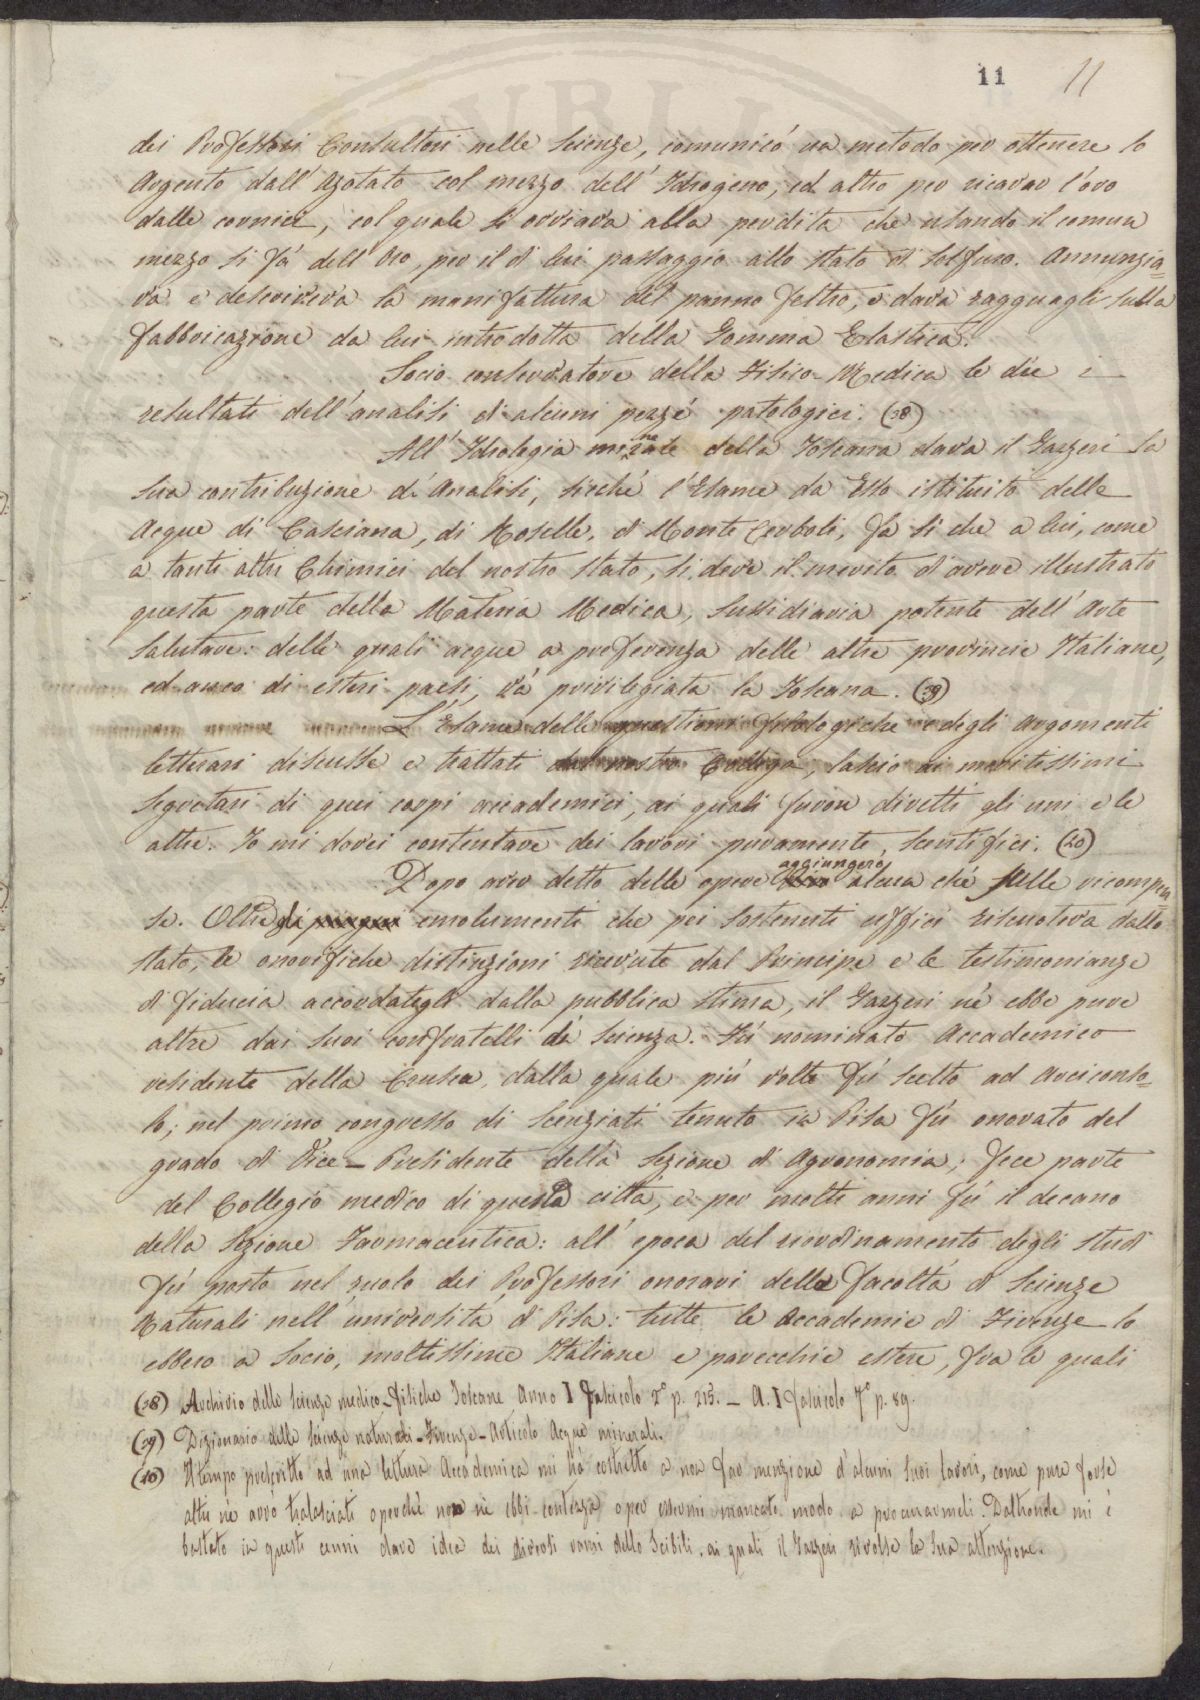 11 11
dei Professori Consultori nelle Scienze, comunicó un metodo per ottenere lo
Argento dall' Azotato col mezzo dell' Idrogeno, ed altro per ricavar l'oro
dalle cornici, col quale si ovviava alla perdita che usando il comun
mezzo si fá dell' Oro, per il di lui passaggio allo stato di Solfuro. Annunzia=
va e descriveva la manifattura del panno feltro, e dava ragguagli sulla
fabbricazione da lui introdotta della Gomma Elastica.
Socio conservatore della Fisico-Medica le die i
resultati dell' analisi di alcuni pezzi patologici. (38)
All' Idrologia minerale della Toscana dava il Gazzeri la
sua contribuzione di Analisi, sicché l'Esame da Esso istituito delle
Acque di Casciana, di Roselle, di Monte Cerboli, fa si che a lui, come
a tanti altri Chimici del nostro stato, si deve il merito di avere illustrato
questa parte della Materia Medica, sussidiaria potente dell' Arte
salutare: delle quali acque a preferenza delle altre provincie Italiane,
ed anco di esteri paesi, vá privilegiata la Toscana. (39)
L' Esame delle questioni filologiche e degli argomenti
letterari discusse e trattati dal nostro Collega, lascio ai meritissimi
Segretari di quei corpi accademici, ai quali furon diretti gli uni e le
altre. Io mi dovei contentare dei lavori puramente scentifici. (40)
Dopo aver detto delle opere aggiungero alcun ché sulle ricompen
se. Oltre gli emolumenti che pei sostenuti uffici riscuoteva dallo
stato, le onorifiche distinzioni ricevute dal Principe e le testimonianze
di fiducia accordategli dalla pubblica stima, il Gazzeri né ebbe pure
altre dai suoi confratelli di Scienza. Fú nominato Accademico
residente della Crusca, dalla quale piú volte fú scelto ad Arciconso=
lo; nel primo congresso di Scenziati tenuto in Pisa fú onorato del
grado di Vice-Presidente della Sezione di Agronomia; fece parte
del Collegio medico di questa cittá, e per molti anni fú il decano
della Sezione Farmaceutica: all' epoca del riordinamento degli studi
fú posto nel ruolo dei Professori onorari della facoltá di Scienze
Naturali nell' universitá di Pisa: tutte le Accademie di Firenze lo
ebbero a Socio, moltissime Italiane e parecchie estere, fra le quali
(38) Archivio delle Scienze medico-fisiche Toscane Anno I Fascicolo 2° p. 213. - A. I fascicolo 7° p. 89.
(39) Dizionario delle Scienze naturali - Firenze - Articolo Acque minerali.
(40) Il tempo prescritto ad una lettura Accademica mi há costretto a non far menzione d'alcuni suoi lavori, come pure forse
altri né avró tralasciati o perché non né ebbi contezza o per essermi mancato modo a procurarmeli. Daltronde mi é
bastato in questi cenni dare idea dei diversi rami dello Scibile, ai quali il Gazzeri rivolse la sua attenzione.